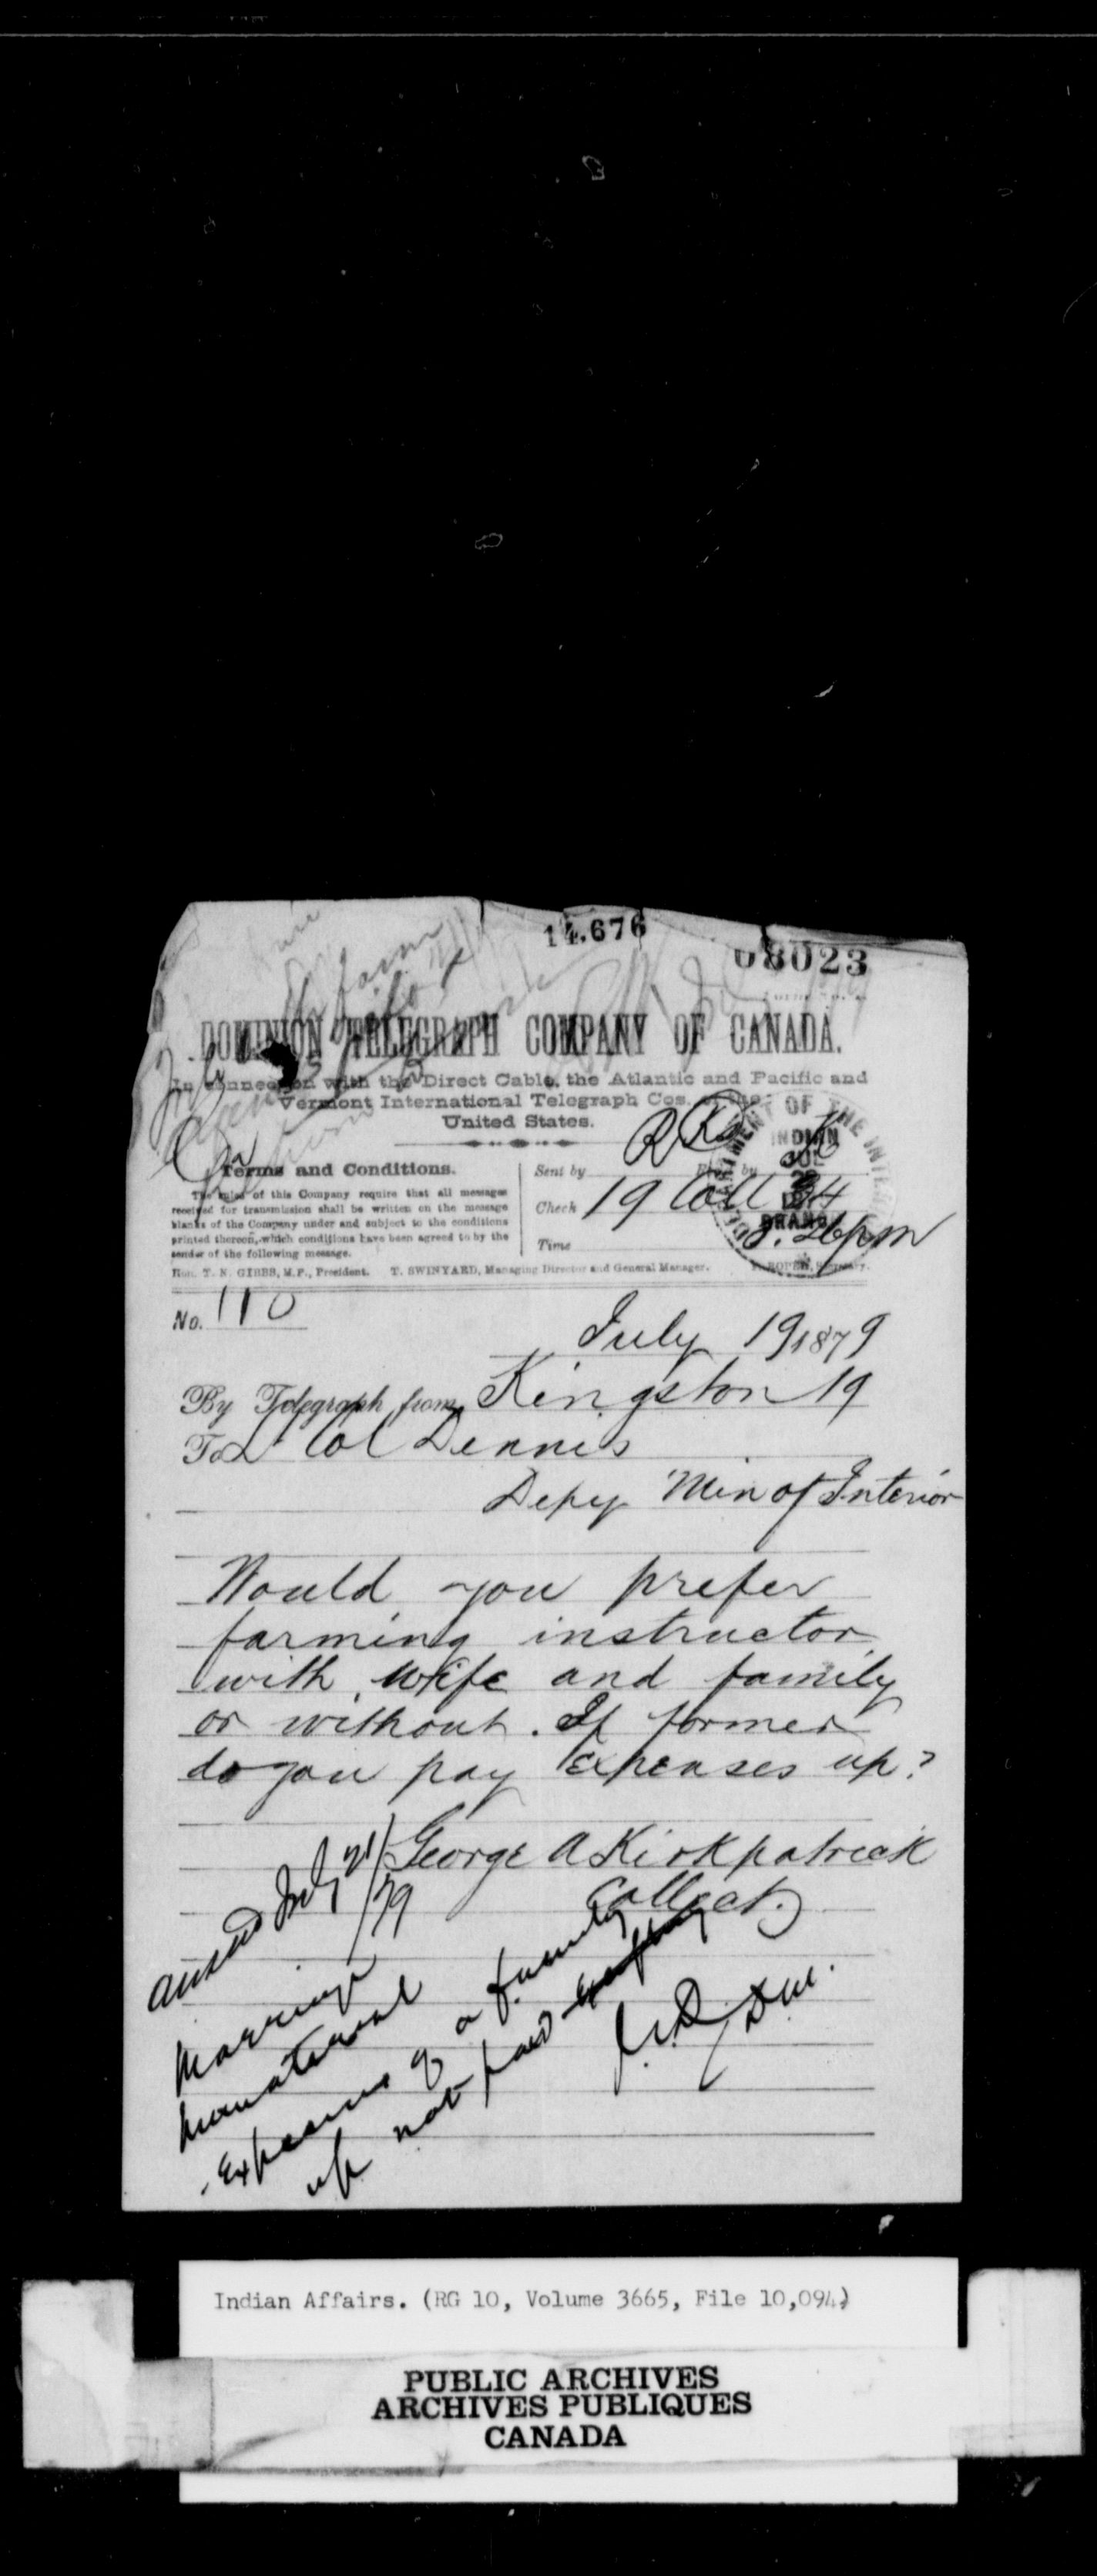 14,676
08023
DOMINION TELEGRAPH COMPANY OF CANADA.
In connection with the Direct Cable, the Atlantic and Pacific and
Vermont International Telegraph Cos. of the
United States.
DEPARTMENT OF THE INTERIOR
INDIAN
JUL
BRANCH
Terms and Conditions.
The rules of this Company require that all messages
received for transmission shall be written on the message
blanks of the Company under and subject to the conditions
printed thereon, which conditions have been agreed to by the
sender of the following message.
Sent by
Rec'd by
Check 19 Coll 34
Time 8.26pm
Hon. T. N. GIBBS, M.P., President. T. SWINYARD, Managing Director and General Manager. F. ROPER, Secretary.
No. 110
July 19 1879
By Telegraph from Kingston 19
To Lt Col Dennis
Depy Min of Interior
Would you prefer
farming instructor
with wife and family
or without. If former
do you pay expenses up?
George A Kirkpatrick
Collect.
Ansd July 21/79
Marriage
immaterial
Expenses of a family
up not paid
J.S.D. D.M.
Indian Affairs. (RG 10, Volume 3665, File 10,094)
PUBLIC ARCHIVES
ARCHIVES PUBLIQUES
CANADA